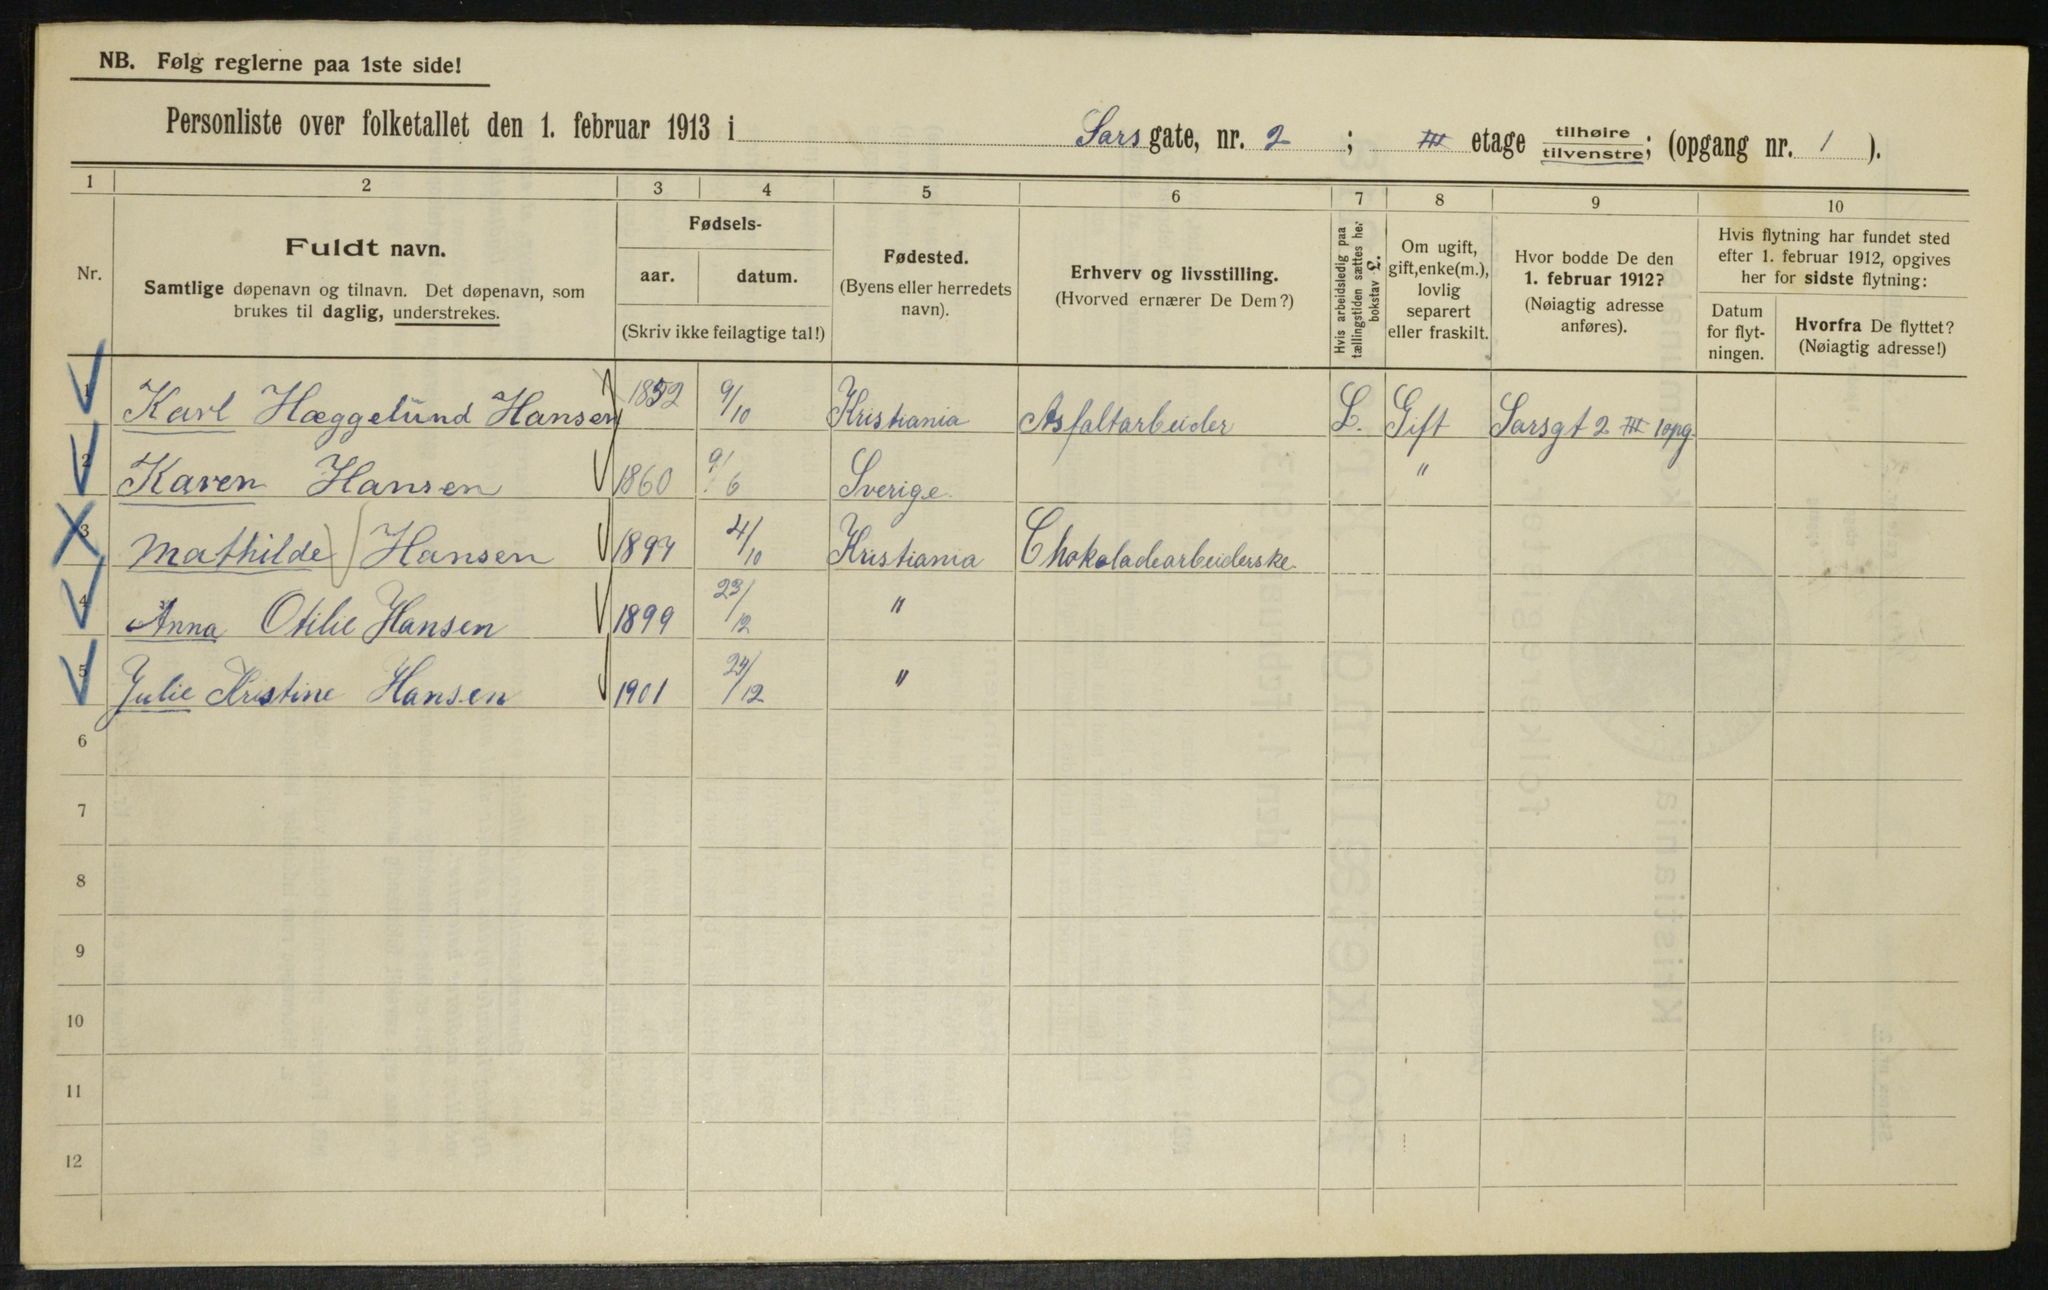 NB. Følg reglerne paa 1ste side!
Personliste over folketallet den 1. februar 1913 i Sars gate, nr. 2 ; III etage tilhøire tilvenstre; (opgang nr. 1 ).
1 2 3 4 5 6 7 8 9 10
Nr.
Fuldt navn.
Samtlige døpenavn og tilnavn. Det døpenavn, som
brukes til daglig, understrekes.
Fødsels-
aar. datum.
(Skriv ikke feilagtige tal!)
Fødested.
(Byens eller herredets
navn).
Erhverv og livsstilling.
(Hvorved ernærer De Dem?)
Hvis arbeidsledig paa
tællingstiden sættes her
bokstav L.
Om ugift,
gift, enke(m.),
lovlig
separert
eller fraskilt.
Hvor bodde De den
1. februar 1912?
(Nøiagtig adresse
anføres).
Hvis flytning har fundet sted
efter 1. februar 1912, opgives
her for sidste flytning:
Datum
for flyt-
ningen.
Hvorfra De flyttet?
(Nøiagtig adresse!)
1 Karl Hæggelund Hansen 1852 9/10 Kristiania Asfaltarbeider L. Gift Sarsgt 2 III 1opg.
2 Karen Hansen 1860 9/6 Sverige. "
3 Mathilde Hansen 1897 4/10 Kristiania Chokoladearbeiderske.
4 Anna Otilie Hansen 1899 23/12 "
5 Julie Kristine Hansen 1901 24/12 "
6
7
8
9
10
11
12